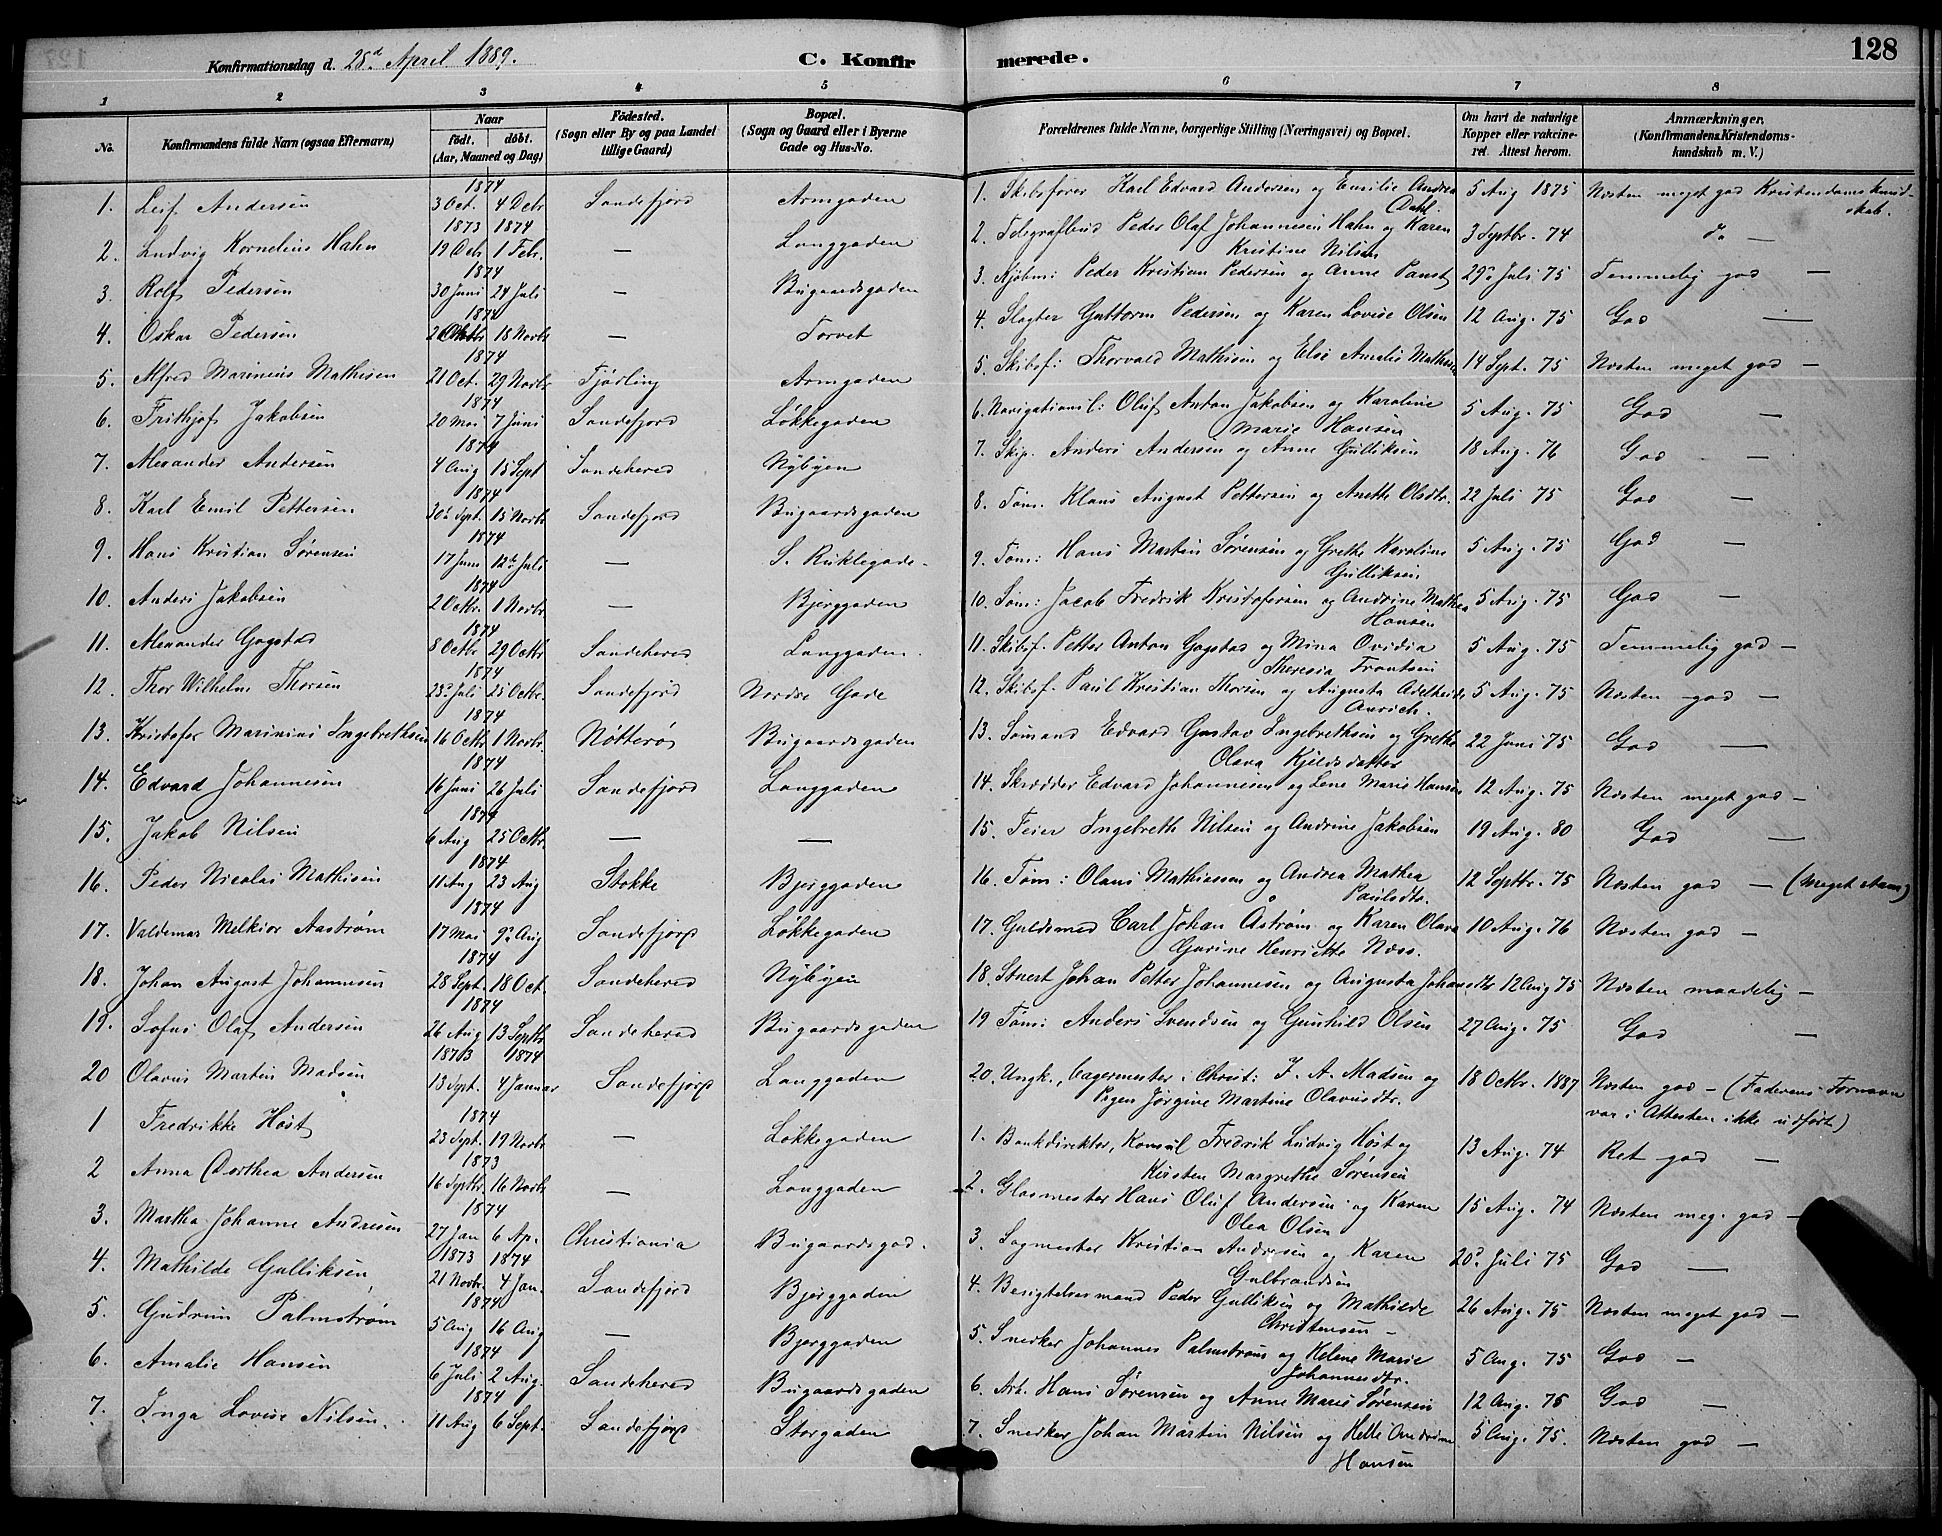 Konfirmationsdag d. 28d April 1889. C. Konfirmerede. 128
1 2 3 4 5 6 7 8
No. Konfirmandens fulde Navn (ogsaa Efternavn) Naar født. døbt. (Aar, Maaned og Dag) Fødested. (Sogn eller By og paa Landet tillige Gaard) Bopæl. (Sogn og Gaard eller i Byerne Gade og Hus-No. Forældrenes fulde Navne, borgerlige Stilling (Næringsvei) og Bopæl. Om havt de naturlige Kopper eller vakcineret. Attest herom. Anmærkninger. (Konfirmandens Kristendomskundskab m. V.)
1874
1. Leif Andersen 3 Oct. 4 Debr Sandefjord Armgaden 1. Skibsfører Karl Edvard Andersen og Emilie Andrea Dahl. 5 Aug 1875 Næsten meget god Kristendomskundskab.
1873 1874
2. Ludvig Kornelius Hahn 19 Octr 1 Febr. — Langgaden 2. Telegrafbud Peder Olaf Johannesen Hahn og Karen Kristine Nilsen 3 Septbr. 74 do —
1874
3. Rolf Pedersen 30 Juni 24 Juli — Bugaardsgaden 3. Kjøbm: Peder Kristian Pedersen og Anne Paust 29d Juli 75 Temmelig god —
1874
4. Oskar Pedersen 2 Octbr 18 Novbr — Torvet 4. Slagter Guttorm Pedersen og Karen Lovise Olsen 12 Aug. 75 God —
1874
5. Alfred Marinius Mathisen 21 Oct. 29 Novbr Tjølling Armgaden 5. Skibsf: Thorvald Mathisen og Else Amalie Mathisen 14 Sept. 75 Næsten meget god —
1874
6. Frithjof Jakobsen 20 Mai 7 Juni Sandefjord Løkkegaden 6. Navigationsl: Oluf Anton Jakobsen og Karoline Marie Hansen 5 Aug. 75 God —
1874
7. Alexander Andersen 4 Aug 15 Sept Sandeherred Nybyen 7. Skip. Anders Andersen og Anne Gulliksen 18 Aug. 76 God —
1874
8. Karl Emil Pettersen 30d Sept. 15 Novbr Sandefjord Bugaardsgaden 8. Tøm. Klaus August Pettersen og Anette Olsdtr. 22 Juli 75 God —
1874
9. Hans Kristian Sørensen 17 Juni 12te Juli — S. Ruklegade. 9. Tøm: Hans Martin Sørensen og Grethe Karoline Gulliksen 5 Aug. 75 God —
1874
10. Anders Jakobsen 2 Octbr. 1 Novbr. — Bjerggaden 10. Søm: Jacob Fredrik Kristofersen og Andrine Mathea Hansen 5 Aug. 75 God —
1874
11. Alexander Gogstad 8 Octbr 29 Octbr Sandeherred Langgaden. 11. Skibsf. Petter Anton Gogstad og Mina Ovidia Theresia Frantsen 5 Aug. 75 Temmelig god —
1874
12. Thor Wilhelm Thorsen 23d Juli 25 Octbr. Sandefjord Nordre Gade 12. Skibsf. Paul Kristian Thorsen og Augusta Adelheide 5 Aug. 75 Næsten god —
1874
13. Kristofer Marinius Ingebrethsen 16 Octbr 1 Novbr. Nøtterø Bugaardsgaden 13. Sømand Edvard Gustav Ingebrethsen og Grethe Olava Kjeldsdatter 22 Juni 75 God —
1874
14. Edvard Johannesen 16 Juni 26 Juli Sandefjord Langgaden 14. Skrædder Edvard Johannesen og Lene Marie Hansen 12 Aug. 75 Næsten meget god —
1874
15. Jakob Nilsen 6 Aug 25 Octbr. — — 15. Feier Ingebreth Nilsen og Andrine Jakobsen 19 Aug. 80 God —
1874
16. Peder Nicolai Mathisen 11 Aug 23 Aug Stokke Bjerggaden 16. Tøm: Olaus Mathiassen og Andrea Mathea Paulsdtr. 12 Septbr. 75 Næsten god — (meget stam)
1874
17. Valdemar Melkior Aastrøm 17 Mai 9d Aug Sandefjord Løkkegaden 17. Guldsmed Carl Johan Åstrøm og Karen Olava Gurine Henriette Næss. 10 Aug. 76 Næsten god —
1874
18. Johan August Johannesen 28 Sept. 18 Oct. Sandeherred Nybyen 18. Stuert Johan Petter Johannesen og Augusta Johansdtr 12 Aug 75 Næsten maadelig —
1874
19. Sofus Olaf Andersen 26 Aug 13 Septbr Sandeherred Bugaardsgaden 19 Tøm: Anders Svendsen og Gunhild Olsen 27 Aug. 75 God —
1873 1874
20 Olavus Martin Madsen 13 Sept. 4 Januar Sandefjord Langgaden 20. Ungk., bagermester i Christ: J. A. Madsen og Pigen Jørgine Martine Olavusdtr. 18 Octbr. 1887 Næsten god — (Faderens Fornavn var i Attesten ikke udført)
1874
1 Fredrikke Høst 23 Sept. 19 Novbr — Løkkegaden 1. Bankdirektør, Konsul Fredrik Ludvig Høst og Kirsten Margrethe Sørensen 13 Aug. 74 Ret god —
1873
2 Anna Dorthea Andersen 16 Septbr. 16 Novbr — Langgaden 2. Glasmester Hans Oluf Andersen og Karen Olea Olsen 15 Aug. 74 Næsten meg. god —
1874
3. Martha Johanne Andresen 27 Jan 6 Ap. Christiania Bugaardsgad. 3. Sagmester Kristian Andresen og Karen Gulbrandsen 20d Juli 75 God —
1873 1874
4. Mathilde Gulliksen 21 Novbr. 4 Jan. Sandefjord Bjerggaden 4. Besigtelsesmand Peder Gulliksen og Mathilde Christensen — 26 Aug. 75 Næsten meget god —
1874
5. Gudrun Palmstrøm 5 Aug 16 Aug — Bjerggaden 5. Snedker Johannes Palmstrøm og Helene Marie Johannesdtr. 5 Aug. 75 God —
1874
6. Amalie Hansen 6 Juli 2 Aug. Sandeherred Bugaardsgaden 6. Arb. Hans Sørensen og Anne Marie Sørensen 12 Aug. 75 God —
1874
7. Inga Lovise Nilsen. 11 Aug 6 Sept. Sandefjord Storgaden 7. Snedker Johan Martin Nilsen og Helle Hansen 5 Aug. 75. Næsten god —